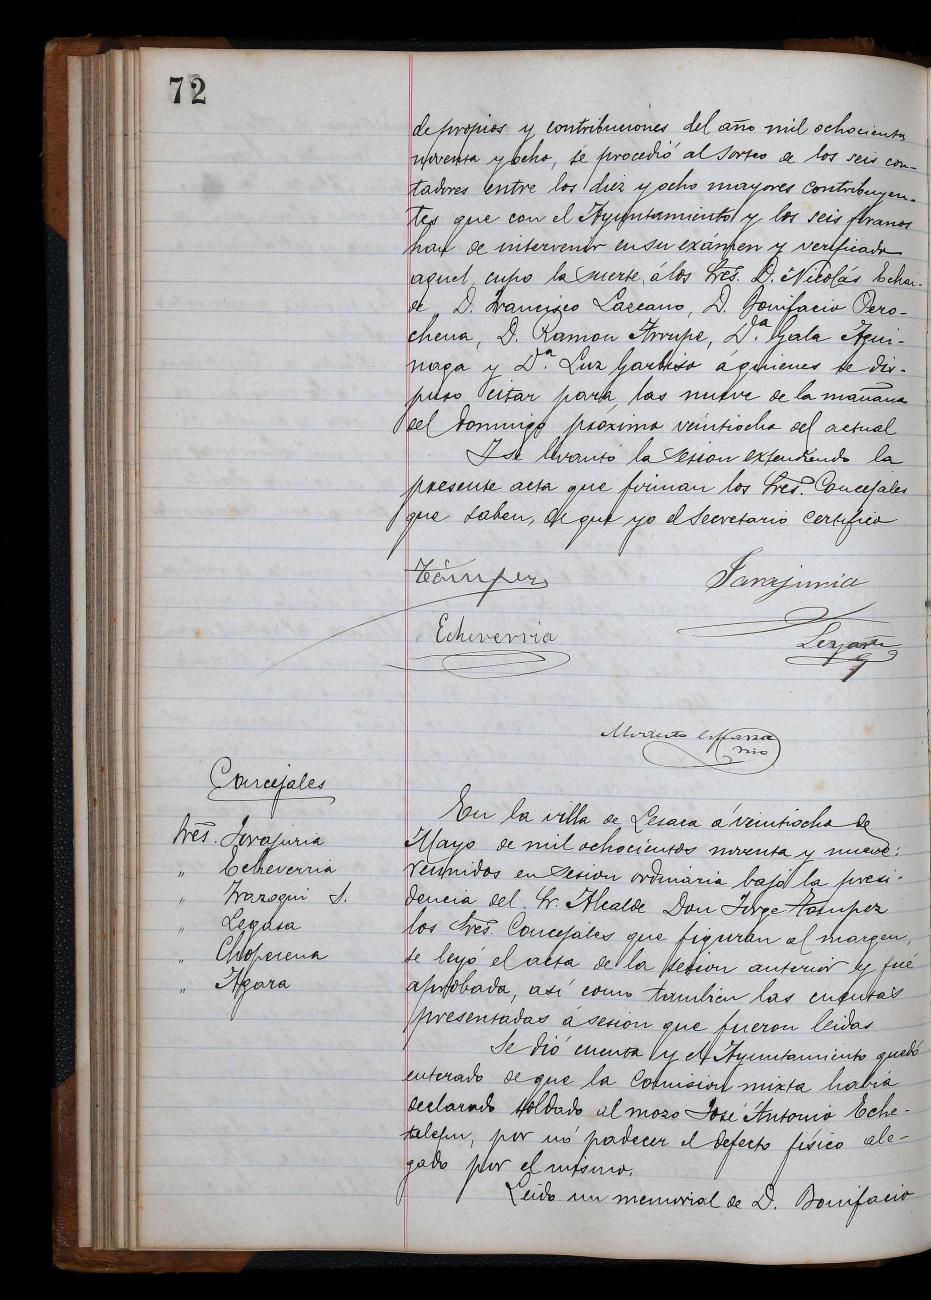 72
de propios y contribuciones del año mil ochocientos
noventa y ocho, se procedió al sorteo de los seis con-
tadores entre los diez y ocho mayores contribuyen-
tes que con el Ayuntamiento y los seis
han de intervenir en su exámen y verificado
aquel, cupo la suerte á los Sres. D. Nicolás Echai-
de D. Francisco Lazcano, D. Bonifacio Pero-
chena, D. Ramon Arrupe, D.ª Gala Agui-
naga y D.ª Luz Garbiso á quienes se dis-
puso citar para las nueve de la mañana
del domingo próximo veintiocho del actual
Y se levanto la sesion extendiendo la
presente acta que firman los Sres. Concejales
que saben, de que yo el Secretario certifico
Tómpez
Echeverria
Concejales
Sres.
„ Echeverria
„ Irazoqui S.
„ Legasa
„ Choperena
„ Agara
En la villa de Lesaca á veintiocho de
Mayo de mil ochocientos noventa y nueve:
reunidos en sesion ordinaria bajo la presi-
dencia del Sr. Alcalde Don Jorge Tompez
los Sres. Concejales que figuran al margen,
se leyó el acta de la sesion anterior y fué
aprobada, así como tambien las cuentas
presentadas á sesion que fueron leidas
Se dió cuenta y el Ayuntamiento quedó
enterado de que la Comision mixta habia
declarado soldado al mozo José Antonio Eche-
por nó padecer el defecto físico ale-
gado por el mismo.
Leido un memorial de D. Bonifacio